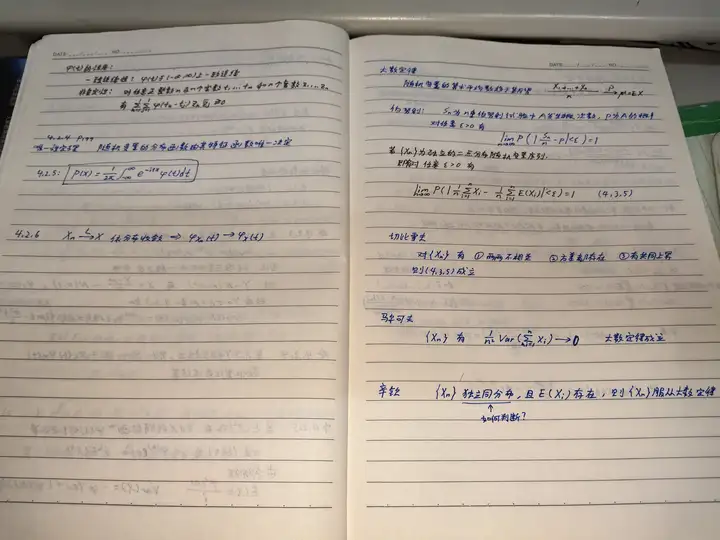 DATE
NO.
φ(t)的性质:
一致连续性: φ(t)在(-∞,∞)上一致连续
非负定性: 对任意正整数n 及n个实数t₁,…,tₙ 和n个复数z₁…zₙ
有 ≥0
4.2.4 P199
唯一性定理 随机变量的分布函数由其特征函数唯一决定
4.2.5: P(x) = 1/2π ∫_{-∞}^{∞} e^{-itx} φ(t)dt
4.2.6 Xₙ —L→ X 依分布收敛 ⇒ φ_{Xₙ}(t) → φ_X(t)
DATE
NO.
大数定律
随机变量的算术平均数趋于其期望
伯努利: Sₙ为n重伯努利试验中A发生的次数, p为A的概率
对任意ε>0 有
lim_{n→∞} P(|Sₙ/n - p|<ε)=1
若{Xₙ}为独立的二点分布随机变量序列,
则有对任意ε>0 有
lim_{n→∞} P(|1/n Σ_{i=1}^{n} Xᵢ - 1/n Σ_{i=1}^{n} E(Xᵢ)|<ε)=1 (4.3.5)
切比雪夫
对{Xₙ} 有 ①两两不相关 ②方差都存在 ③有共同上界
则(4.3.5)成立
马尔可夫
{Xₙ} 有 1/n² Var(Σ_{i=1}^{n} Xᵢ)→0 大数定律成立
辛钦 {Xₙ} 独立同分布, 且E(Xᵢ)存在, 则{Xₙ}服从大数定律
↑
如何判断?